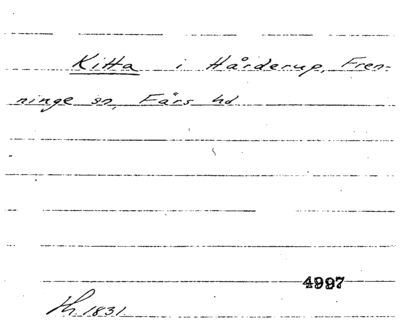 Kitta i Hårderup, Fren-
ninge sn, Färs hd
4997
Th 1831